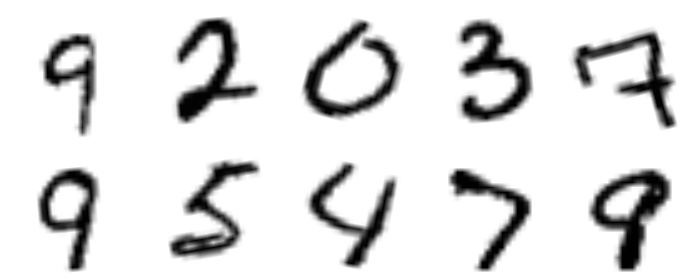 9 2 0 3 7
9 5 4 7 9